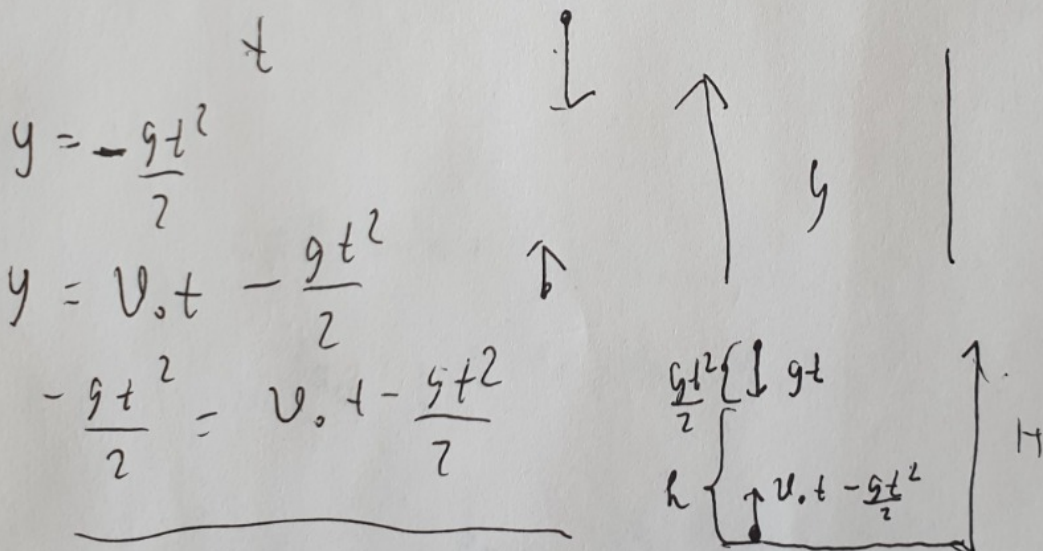 t
y = - gt²/2
y
y = v₀t - gt²/2
- gt²/2 = v₀t - gt²/2
gt²/2 { gt
H
h { v₀t - gt²/2